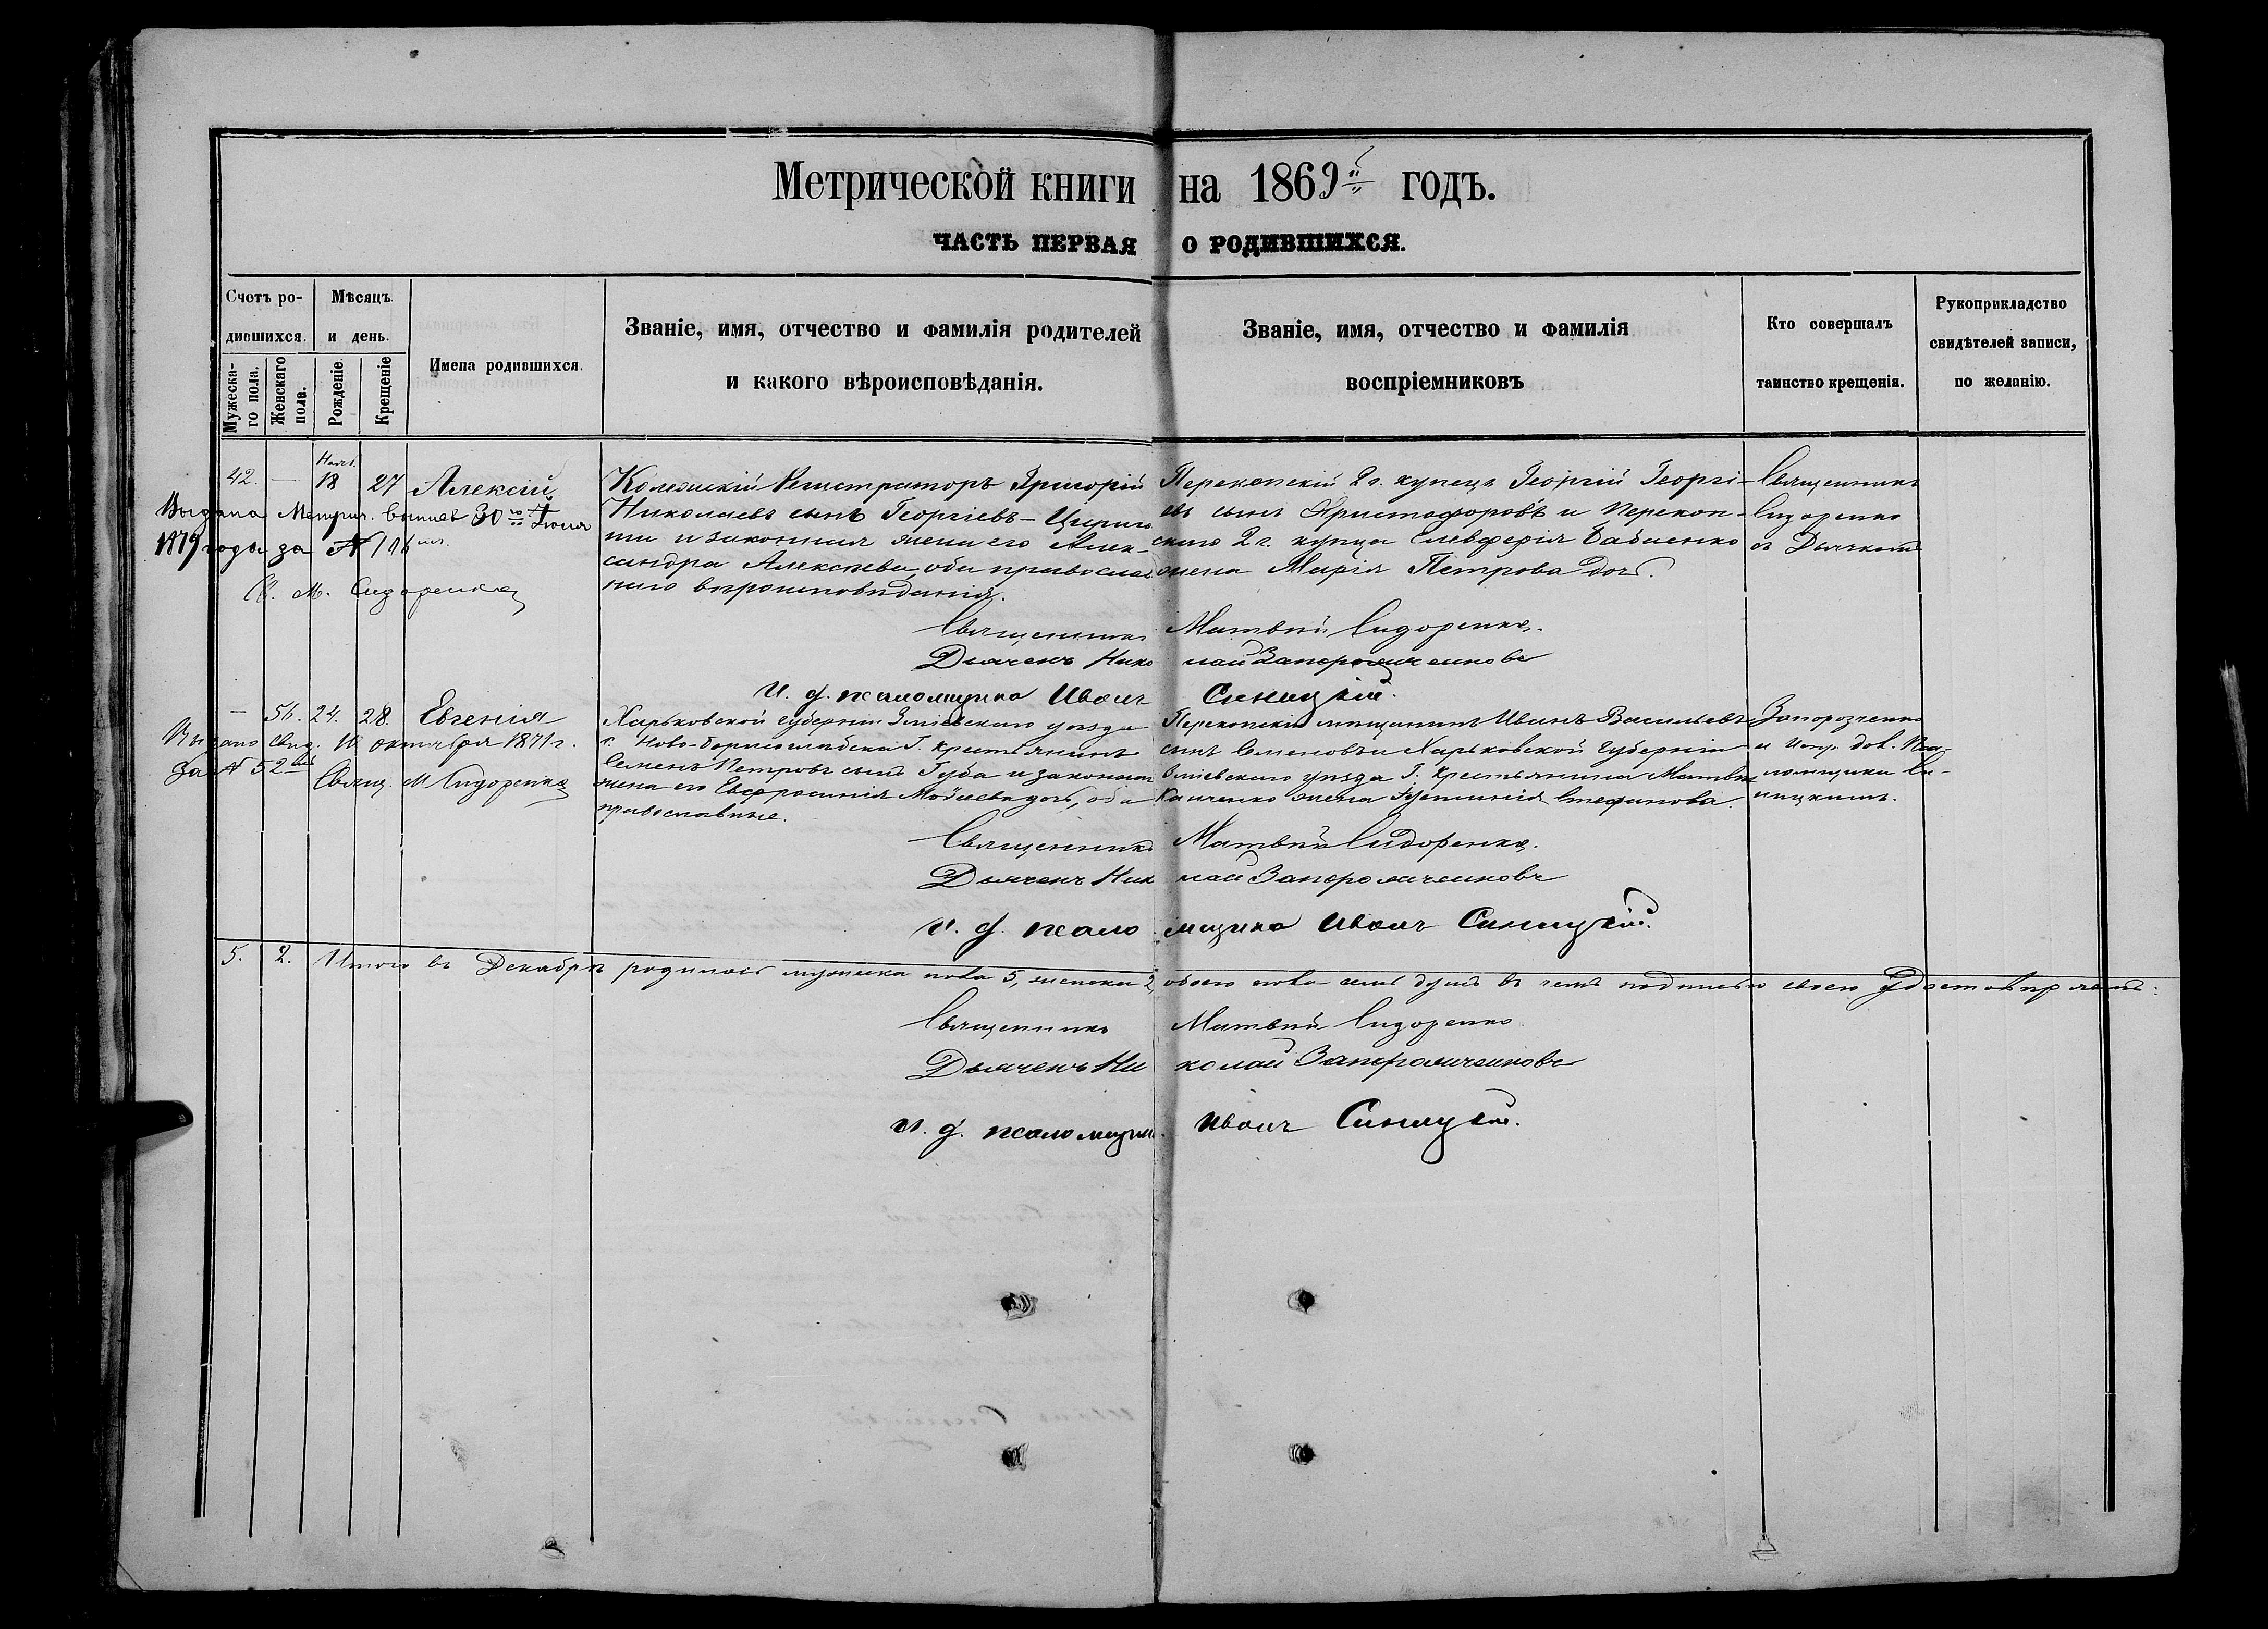 Метрической книги на 1869й годъ.
ЧАСТЬ ПЕРВАЯ О РОДИВШИХСЯ.
Счетъ ро-
дившихся.
Мужеска-
го пола.
Женскаго
пола.
Мѣсяцъ
и день.
Рожденіе
Крещеніе
Имена родившихся.
Званіе, имя, отчество и фамилія родителей
и какого вѣроисповѣданія.
Званіе, имя, отчество и фамилія
воспріемниковъ
Кто совершалъ
таинство крещенія.
Рукоприкладство
свидѣтелей записи,
по желанію.
42. — 18 27 Алексій
Выдана Метрич. выпись 30го Іюня
1879 года за №
С. М. Сидоренко
Колежскій Регистраторъ Григорій
Николаевъ сынъ Георгіевъ-
и законная жена его Алек-
сандра Алексѣева, оба православ
наго вѣроисповѣданія.
Перекопскій 2 г. купецъ Георгій Георгі-
евъ сынъ Христофоровъ и Перекоп-
скаго 2 г. купца Елевферія Бабіенко
жена Марія Петрова доч.
Священникъ
Сидоренко
съ Дьячкомъ
Священникъ Матвѣй Сидоренко.
Дьячекъ Николай Запорожченковъ
И. д. псаломщика Иванъ Синицкій.
— 56. 24. 28. Евгенія
Выдано свид. 16 октября 1871 г.
За № 52
Свящ. М Сидоренко
Харьковской губерніи Зміевскаго уѣзда
с. Ново-Борисоглѣбска Г. крестьянинъ
Семенъ Петровъ сынъ Губа и законная
жена его Евфросинія Мойсеева доч, оба
православные.
Перекопскій мѣщанинъ Иванъ Васильевъ
сынъ Семеновъ и Харьковской губерніи
Зміевскаго уѣзда Г. крестьянина Матвѣя
жена Стефанова.
Запорозченко
и испр. дол. Пса-
ломщика Си-
ницкимъ.
Священникъ Матвѣй Сидоренко.
Дьячекъ Николай Запорожченковъ
И. д. псаломщика Иванъ Синицкій.
5. 2. Итого въ Декабрѣ родилось мужеска пола 5, женска 2, обоего пола семь душъ въ чемъ подписью своею удостовѣряемъ:
Священникъ Матвѣй Сидоренко
Дьячекъ Николай Запорожченковъ
И. д. псаломщик. Иванъ Синицкій.